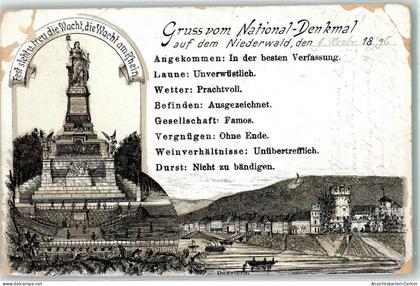 Fest steht u. treu die Wacht, die Wacht am Rhein
Gruss vom National-Denkmal
auf dem Niederwald, den 9. 1896
Angekommen: In der besten Verfassung.
Laune: Unverwüstlich.
Wetter: Prachtvoll.
Befinden: Ausgezeichnet.
Gesellschaft: Famos.
Vergnügen: Ohne Ende.
Weinverhältnisse: Unübertrefflich.
Durst: Nicht zu bändigen.
Ansichtskarten-Center